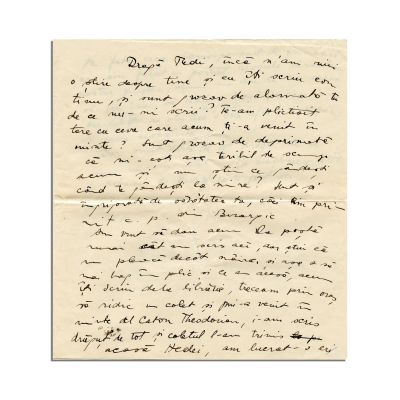 Dragă Tedi, încă n'am nici
o știre despre tine și eu îți scriu con
tinuu, și sunt grozav de alarmată
de ce nu-mi scrii? Te-am plictisit
cu ceva care acum ți-a venit în
minte? Sunt grozav de deprimată
că mi-ești așa teribil de scump
acum și nu știu ce gândești
când te gândești la mine? Sunt și
îngrijorată de sănătatea ta, că am pri
mit c. p. din
Nu vrut să dau acum la poștă
numai ce am scris aci, așa știu că
nu pleacă decât mâine, și așa o să
mai bag în plic și ce am acasă, acum
îți scriu de la librărie, treceam prin oraș
să ridic un colet și mi-a venit în
minte de Caton Theodorian, i-am scris
drăguț de tot, și coletul l-am trimis
acasă Hedei, am lucrat-o eri